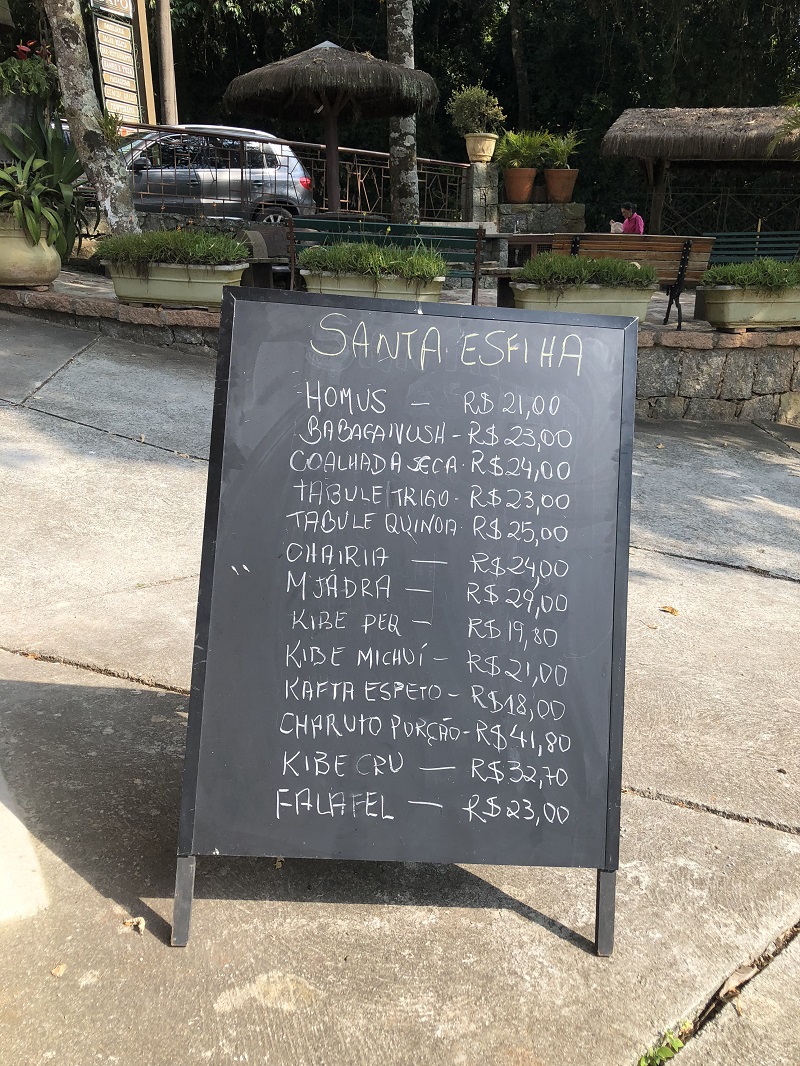 SANTA ESFIHA
HOMUS — R$ 21,00
BABAGANUSH - R$ 23,00
COALHADA SECA - R$ 24,00
TABULE TRIGO - R$ 23,00
TABULE QUINOA - R$ 25,00
CHAIRIA — R$ 24,00
MJÁDRA — R$ 29,00
KIBE PEQ — R$ 19,80
KIBE MICHUÍ - R$ 21,00
KAFTA ESPETO - R$ 18,00
CHARUTO PORÇÃO - R$ 41,80
KIBE CRU — R$ 32,70
FALAFEL — R$ 23,00